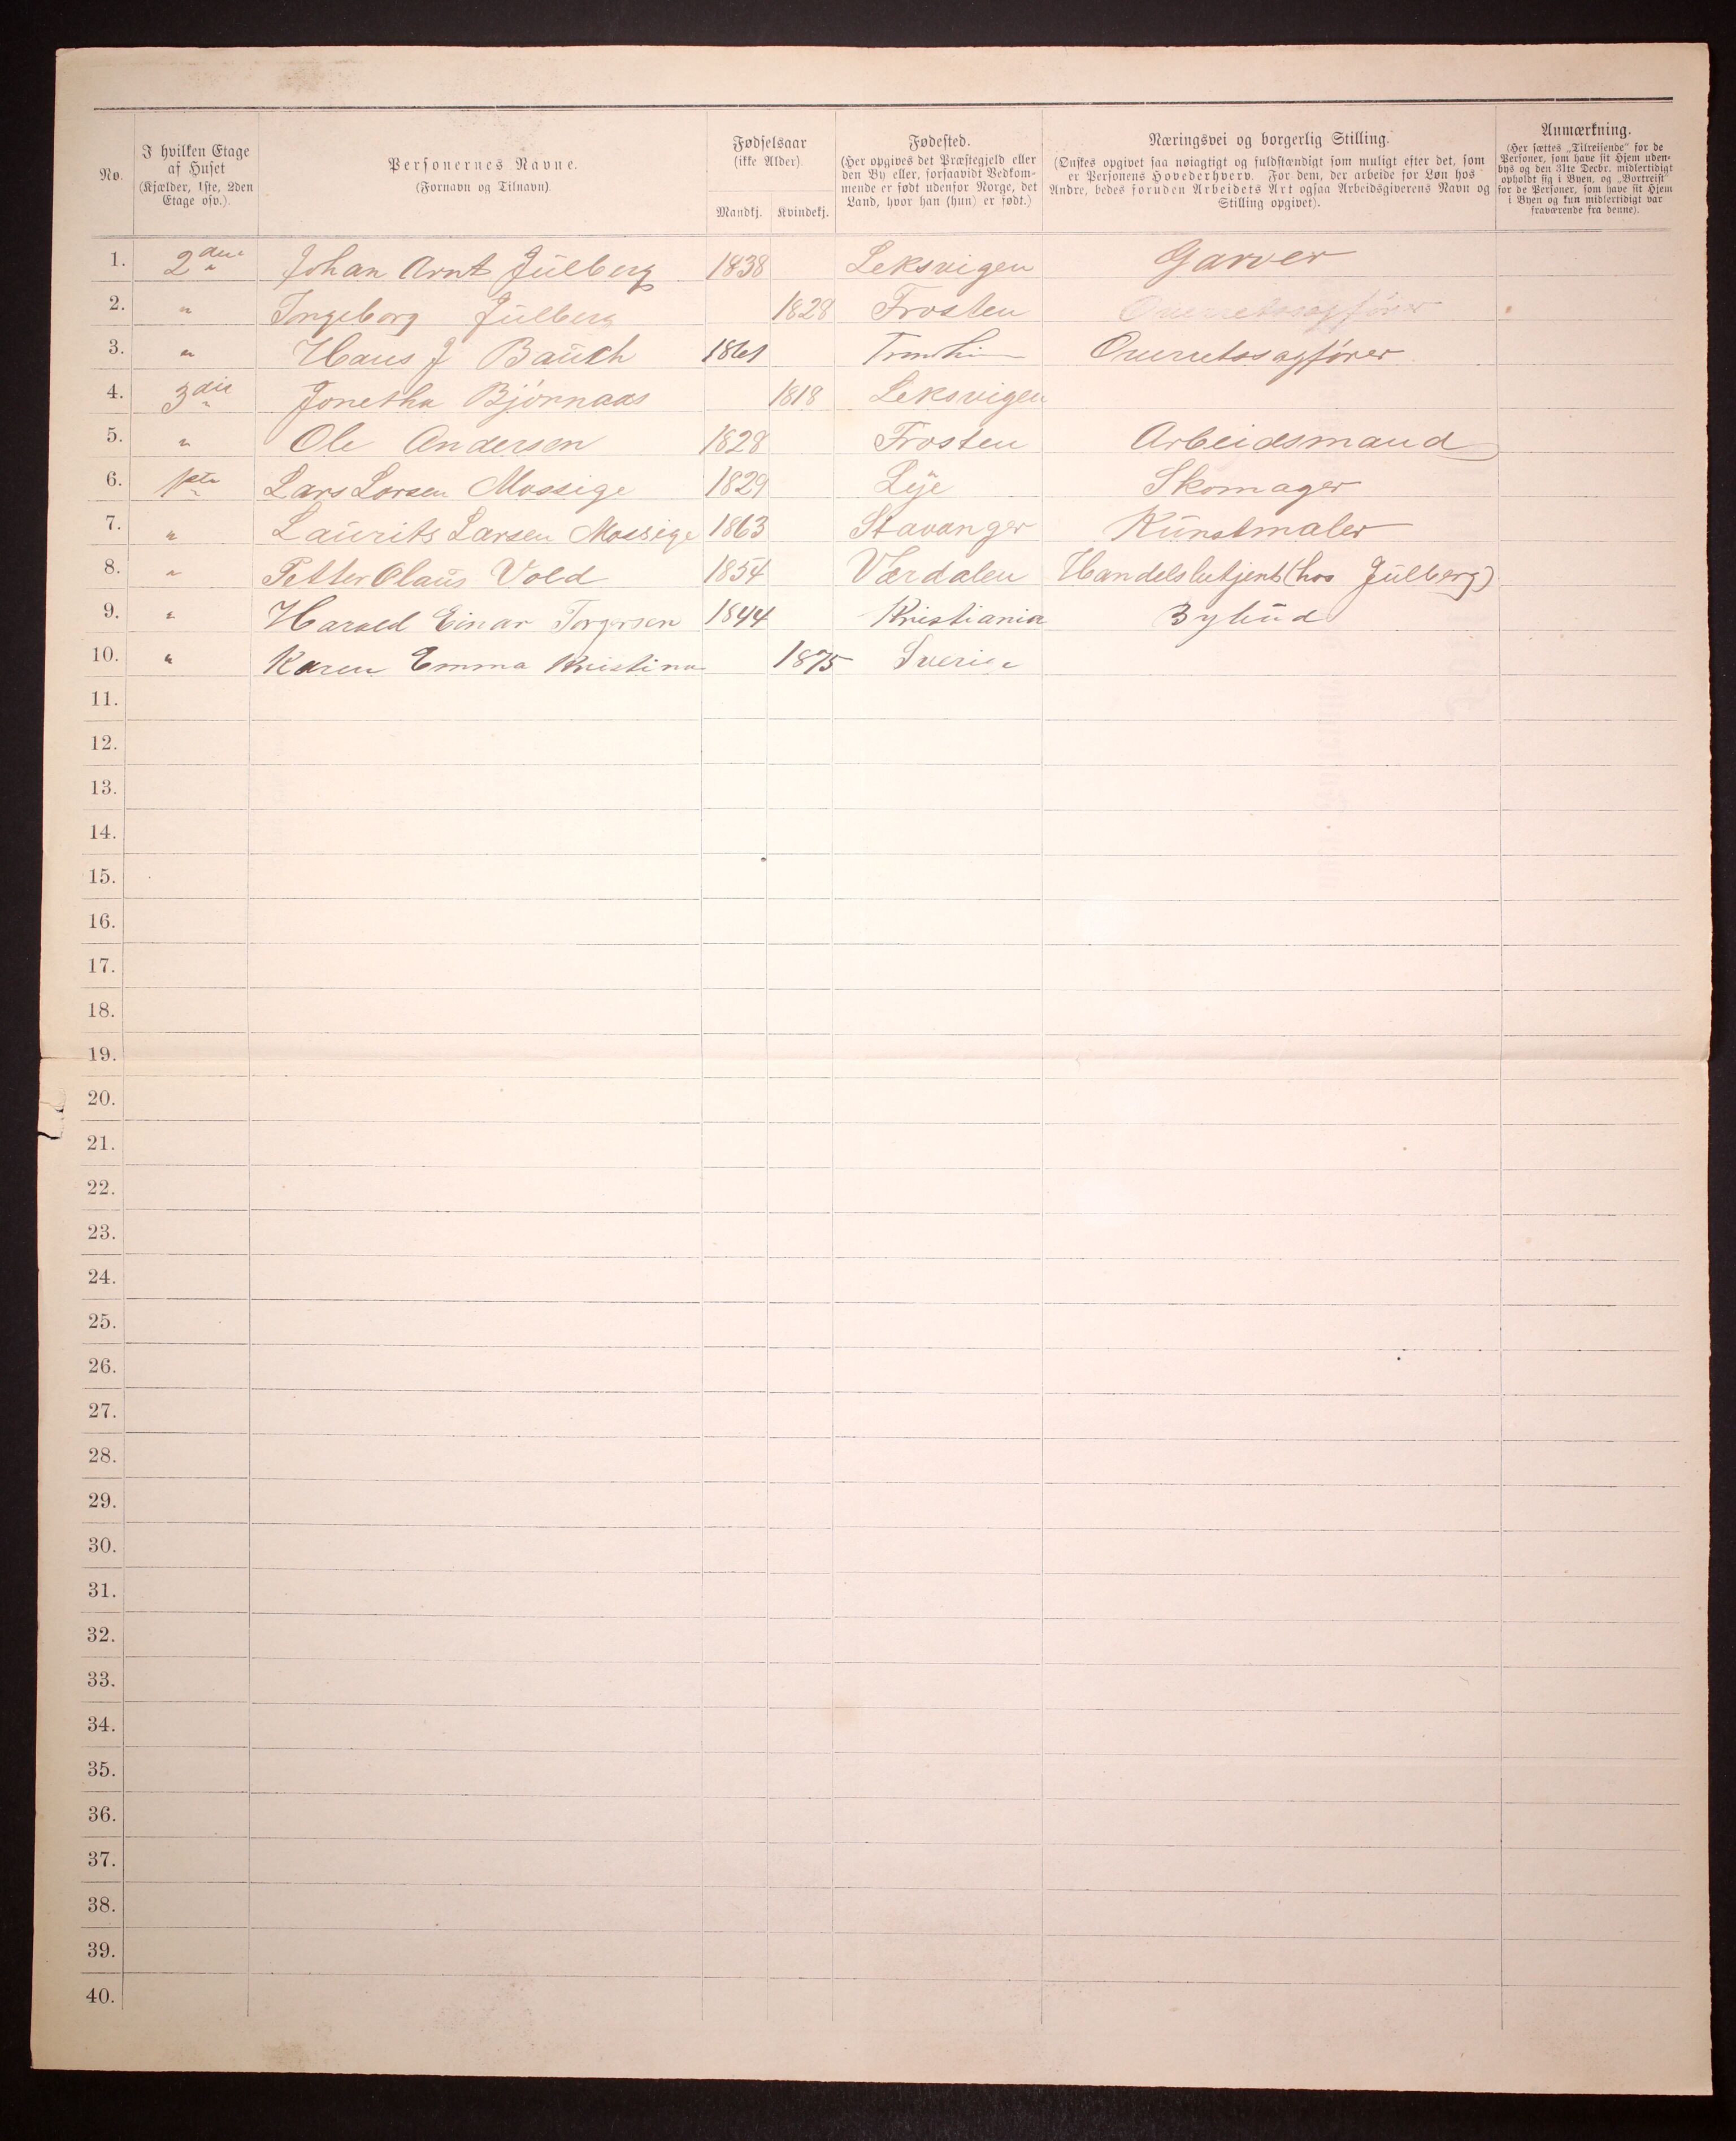 No.
I hvilken Etage
af Huset
(Kjælder, 1ste, 2den
Etage osv.).
Personernes Navne.
(Fornavn og Tilnavn)
Fødselsaar
(ikke Alder)
Mandkj. Kvindekj.
Fødested.
(Her opgives det Præstegjeld eller
den By eller, forsaavidt Vedkom-
mende er født udenfor Norge, det
Land, hvor han (hun) er født.)
Næringsvei og borgerlig Stilling.
(Ønskes opgivet saa nøiagtigt og fuldstændigt som muligt efter det, som
er Personens Hovederhverv. For dem, der arbeide for Løn hos
Andre, bedes foruden Arbeidets Art ogsaa Arbeidsgiverens Navn og
Stilling opgivet).
Anmærkning.
(Her sættes „Tilreisende" for de
Personer, som have sit Hjem uden-
bys og den 31te Decbr. midlertidigt
opholdt sig i Byen, og „Bortreist"
for de Personer, som have sit Hjem
i Byen og kun midlertidigt var
fraværende fra denne).
1. 2den Johan Arnt Jülberg 1838 Leksvigen Garver
2. " Ingeborg Jülberg 1828 Frosten Overretssagfører
3. " Hans J Bauck 1861 Trondhjem Overretssagfører
4. 3die Jonetha Bjørnaas 1818 Leksvigen
5. " Ole Andersen 1828 Frosten Arbeidsmand
6. 1ste Lars Larsen Mossige 1829 Lye Skomager
7. " Laurits Larsen Mossige 1863 Stavanger Kunstmaler
8. " Petter Olaus Vold 1854 Værdalen Handelsbetjent (hos Jülberg)
9. " Harald Einar Torgersen 1844 Kristiania Bybud
10. " Karen Emma Kristina 1875 Sverige
11.
12.
13.
14.
15.
16.
17.
18.
19.
20.
21.
22.
23.
24.
25.
26.
27.
28.
29.
30.
31.
32.
33.
34.
35.
36.
37.
38.
39.
40.